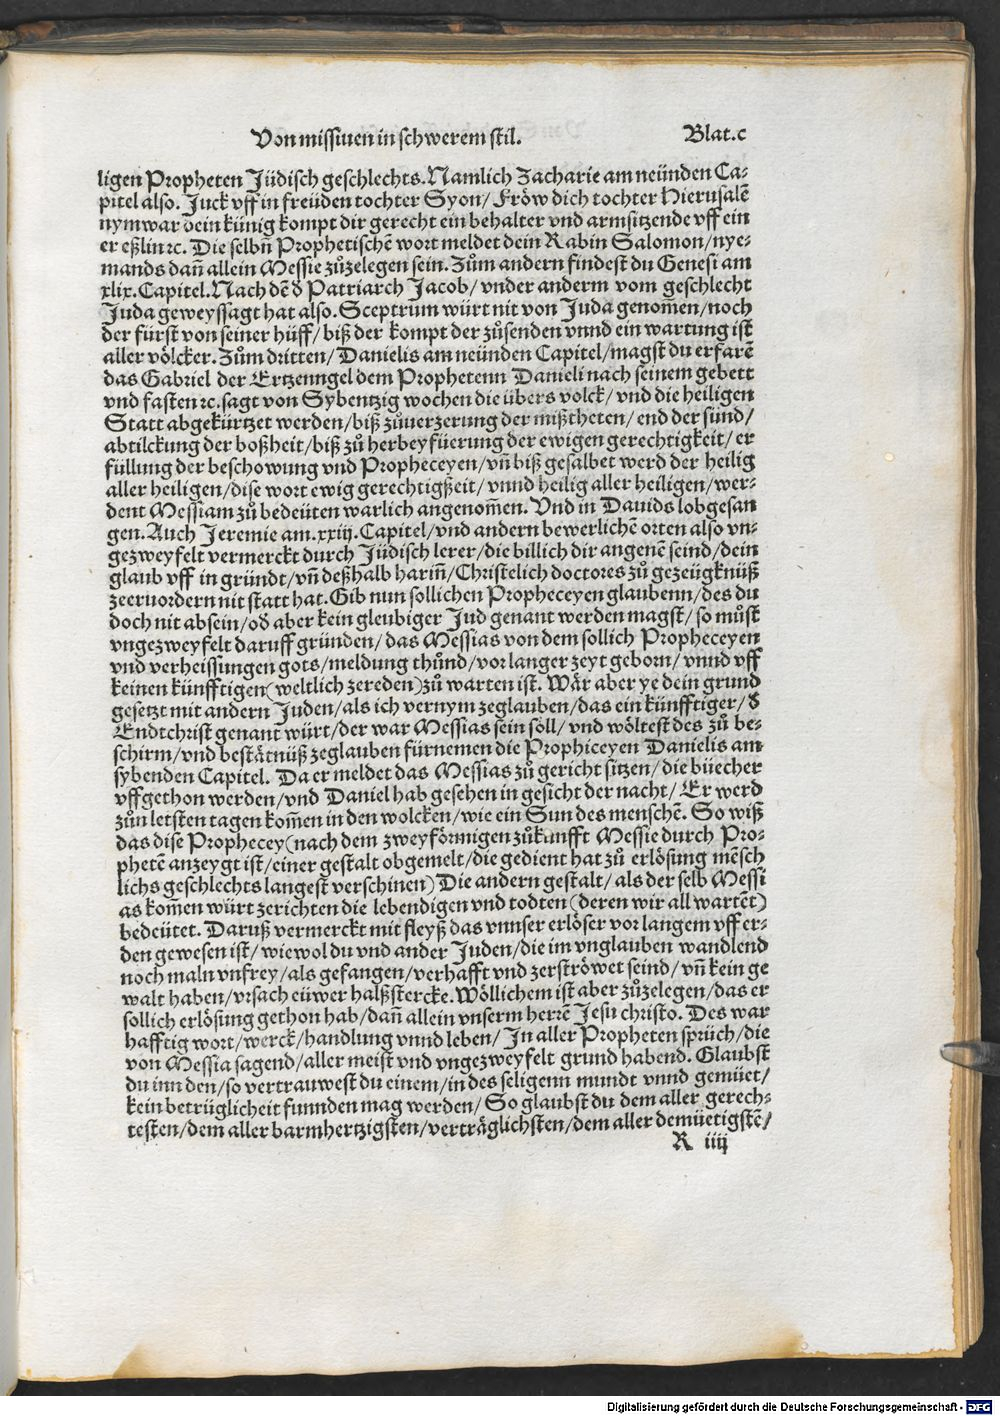 Von missiuen in schwerem stil. Blat.c
ligen Propheten Jüdisch geschlechts. Namlich Zacharie am neünden Ca-
pitel also. Juck vff in freüden tochter Syon/ Fröw dich tochter Hierusalē
nym war dein künig kompt dir gerecht ein behalter vnd arm sitzende vff ein
er eßlin ꝛc. Die selbñ Prophetischē wort meldet dein Rabin Salomon/nye-
mands dañ allein Messie zůzelegen sein. Zům andern findest du Genesi am
xlix. Capitel. Nach dē đ Patriarch Jacob/ vnder anderm vom geschlecht
Juda geweyssagt hat also. Sceptrum würt nit von Juda genom̄en/noch
der fürst von seiner hüff/ biß der kompt der zůsenden vnnd ein wartung ist
aller völcker. Zům dritten/ Danielis am neünden Capitel/magst du erfarē
das Gabriel der Ertzenngel dem Prophetenn Danieli nach seinem gebett
vnd fasten ꝛc. sagt von Sybentzig wochen die übers volck/ vnd die heiligen
Statt abgekürtzet werden/biß zůuerzerung der mißtheten/ end der sünd/
abtilckung der boßheit/biß zů herbeyfüerung der ewigen gerechtigkeit/ er
füllung der beschowung vnd Propheceyen/ vñ biß gesalbet werd der heilig
aller heiligen/dise wort ewig gerechtigkeit/ vnnd heilig aller heiligen/wer-
dent Messiam zů bedeüten warlich angenom̄en. Vnd in Dauids lobgesan
gen. Auch Jeremie am. xxiij. Capitel/vnd andern bewerlichē orten also vn-
gezweyfelt vermerckt durch Jüdisch lerer/die billich dir angenē seind/dein
glaub vff in gründt/vñ deßhalb hariñ/Christelich doctores zů gezeügknüß
zeeruordern nit statt hat. Gib nun sollichen Propheceyen glaubenn/des du
doch nit absein/od aber kein gleubiger Jud genant werden magst/ so můst
vngezweyfelt daruff gründen/ das Messias von dem sollich Propheceyen
vnd verheissungen gots/meldung thůnd/vor langer zeyt geborn/ vnnd vff
keinen künfftigen(weltlich zereden)zů warten ist. Wär aber ye dein grund
gesetzt mit andern Juden/als ich vernym zeglauben/das ein künfftiger/đ
Endtchrist genant würt/der war Messias sein söll/ vnd wöltest des zů be-
schirm/vnd bestätnüß zeglauben fürnemen die Prophiceyen Danielis am
sybenden Capitel. Da er meldet das Messias zů gericht sitzen/die büecher
vffgethon werden/vnd Daniel hab gesehen in gesicht der nacht/ Er werd
zůn letsten tagen kom̄en in den wolcken/wie ein Sun des menschē. So wiß
das dise Prophecey(nach dem zweyförmigen zůkunfft Messie durch Pro-
phetē anzeygt ist/einer gestalt obgemelt/die gedient hat zů erlösung mēsch
lichs geschlechts langest verschinen) Die andern gestalt/als der selb Messi
as kom̄en würt zerichten die lebendigen vnd todten (deren wir all wartēt)
bedeütet. Daruß vermerckt mit fleyß das vnnser erlöser vor langem vff er-
den gewesen ist/ wiewol du vnd ander Juden/die im vnglauben wandlend
noch maln vnfrey/als gefangen/verhafft vnd zerströwet seind/vñ kein ge
walt haben/vrsach eüwer halßstercke. Wöllichem ist aber zůzelegen/das er
sollich erlösung gethon hab/dañ allein vnserm herrē Jesu christo. Des war
hafftig wort/werck/handlung vnnd leben/ In aller Propheten sprüch/die
von Messia sagend/aller meist vnd vngezweyfelt grund habend. Glaubst
du inn den/so vertrauwest du einem/in des seligenn mundt vnnd gemüet/
kein betrüglicheit funnden mag werden/ So glaubst du dem aller gerech-
testen/dem aller barmhertzigsten/verträglichsten/dem aller demüetigstē/
R iiij
Digitalisierung gefördert durch die Deutsche Forschungsgemeinschaft - DFG